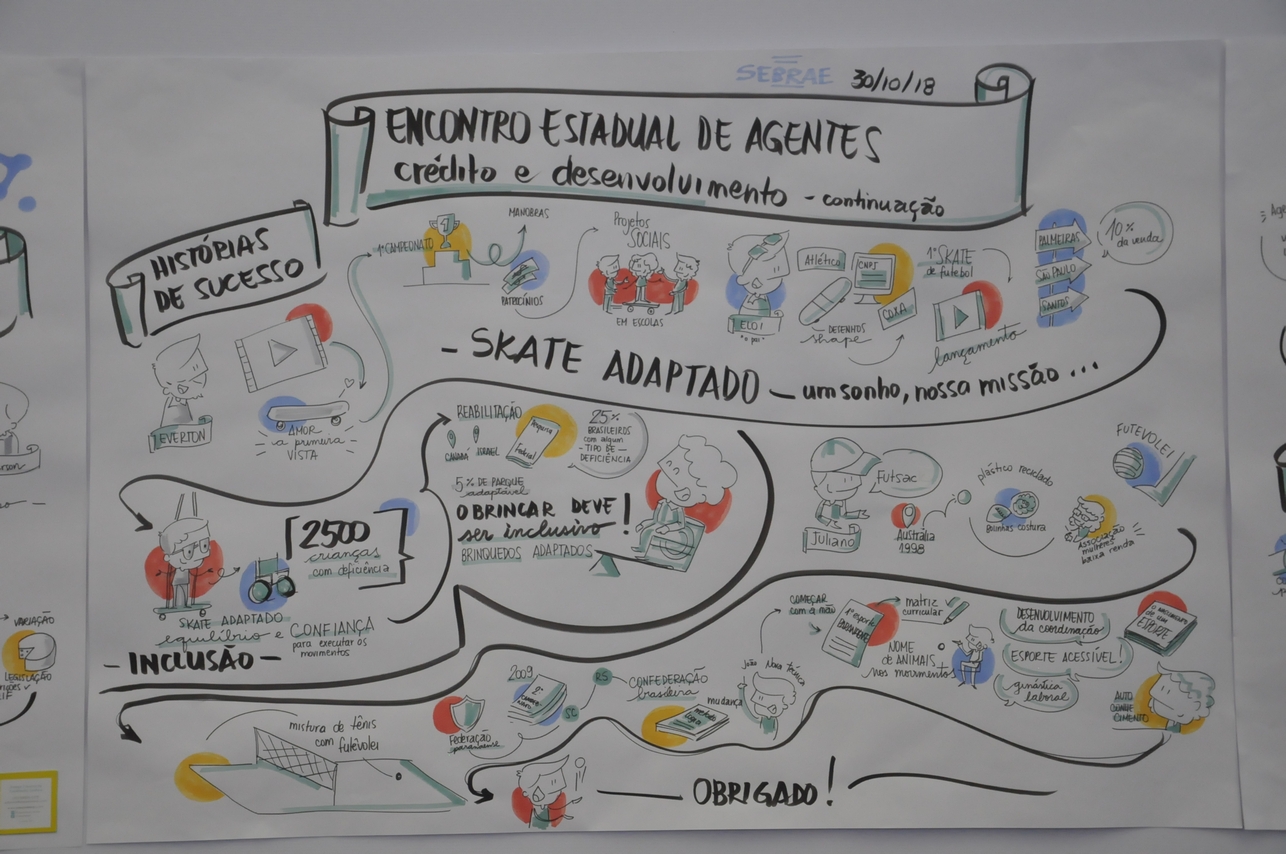 SEBRAE 30/10/18
ENCONTRO ESTADUAL DE AGENTES
crédito e desenvolvimento - continuação
HISTÓRIAS
DE SUCESSO
EVERTON
AMOR
à primeira
VISTA
1º CAMPEONATO
1
MANOBRAS
PATROCÍNIOS
Projetos
SOCIAIS
EM ESCOLAS
ELOI
"o pai"
Atlético
CNPJ
COXA
DESENHOS
shape
1º SKATE
de futebol
lançamento
PALMEIRAS
SÃO PAULO
SANTOS
10%
da venda
- SKATE ADAPTADO - um sonho, nossa missão...
2500
crianças
com deficiência
SKATE ADAPTADO
equilíbrio e CONFIANÇA
para executar os
movimentos
- INCLUSÃO -
REABILITAÇÃO
CANADÁ ISRAEL
25%
BRASILEIROS
com algum
TIPO DE
DEFICIÊNCIA
5% DE PARQUE
adaptável
O BRINCAR DEVE
ser inclusivo!
BRINQUEDOS ADAPTADOS
Juliano
Futsac
Austrália
1998
plástico reciclado
Bolinhas costura
ASSOCIAÇÃO
mulheres
baixa renda
FUTEVOLEI
mistura de tênis
com futevôlei
Federação
paranaense
2009
RS
SC
CONFEDERAÇÃO
brasileira
mudança
João Nova técnica
COMEÇAR
com a mão
1º esporte
PARANAENSE
matriz
curricular
NOME
DE ANIMAIS
nos movimentos
DESENVOLVIMENTO
da coordenação
ESPORTE ACESSÍVEL!
ginástica
laboral
O nascimento
de um
ESPORTE
AUTO
CONHE
CIMENTO
OBRIGADO!
VARIAÇÃO
LEGISLAÇÃO